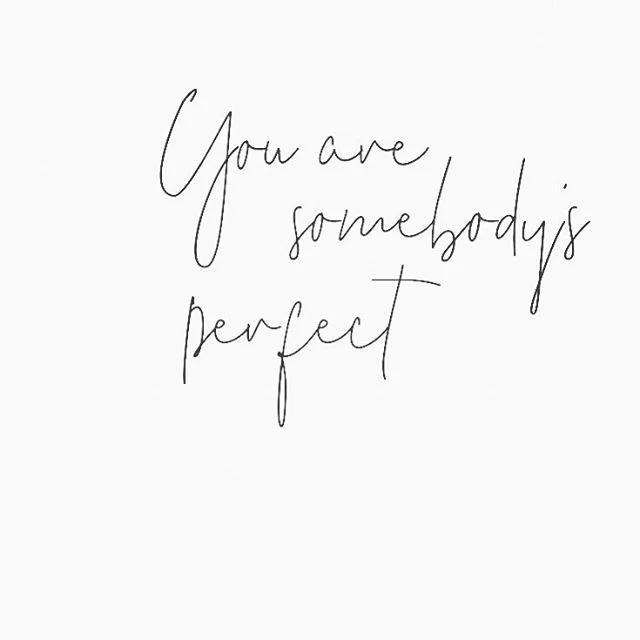 You are
somebody's
perfect